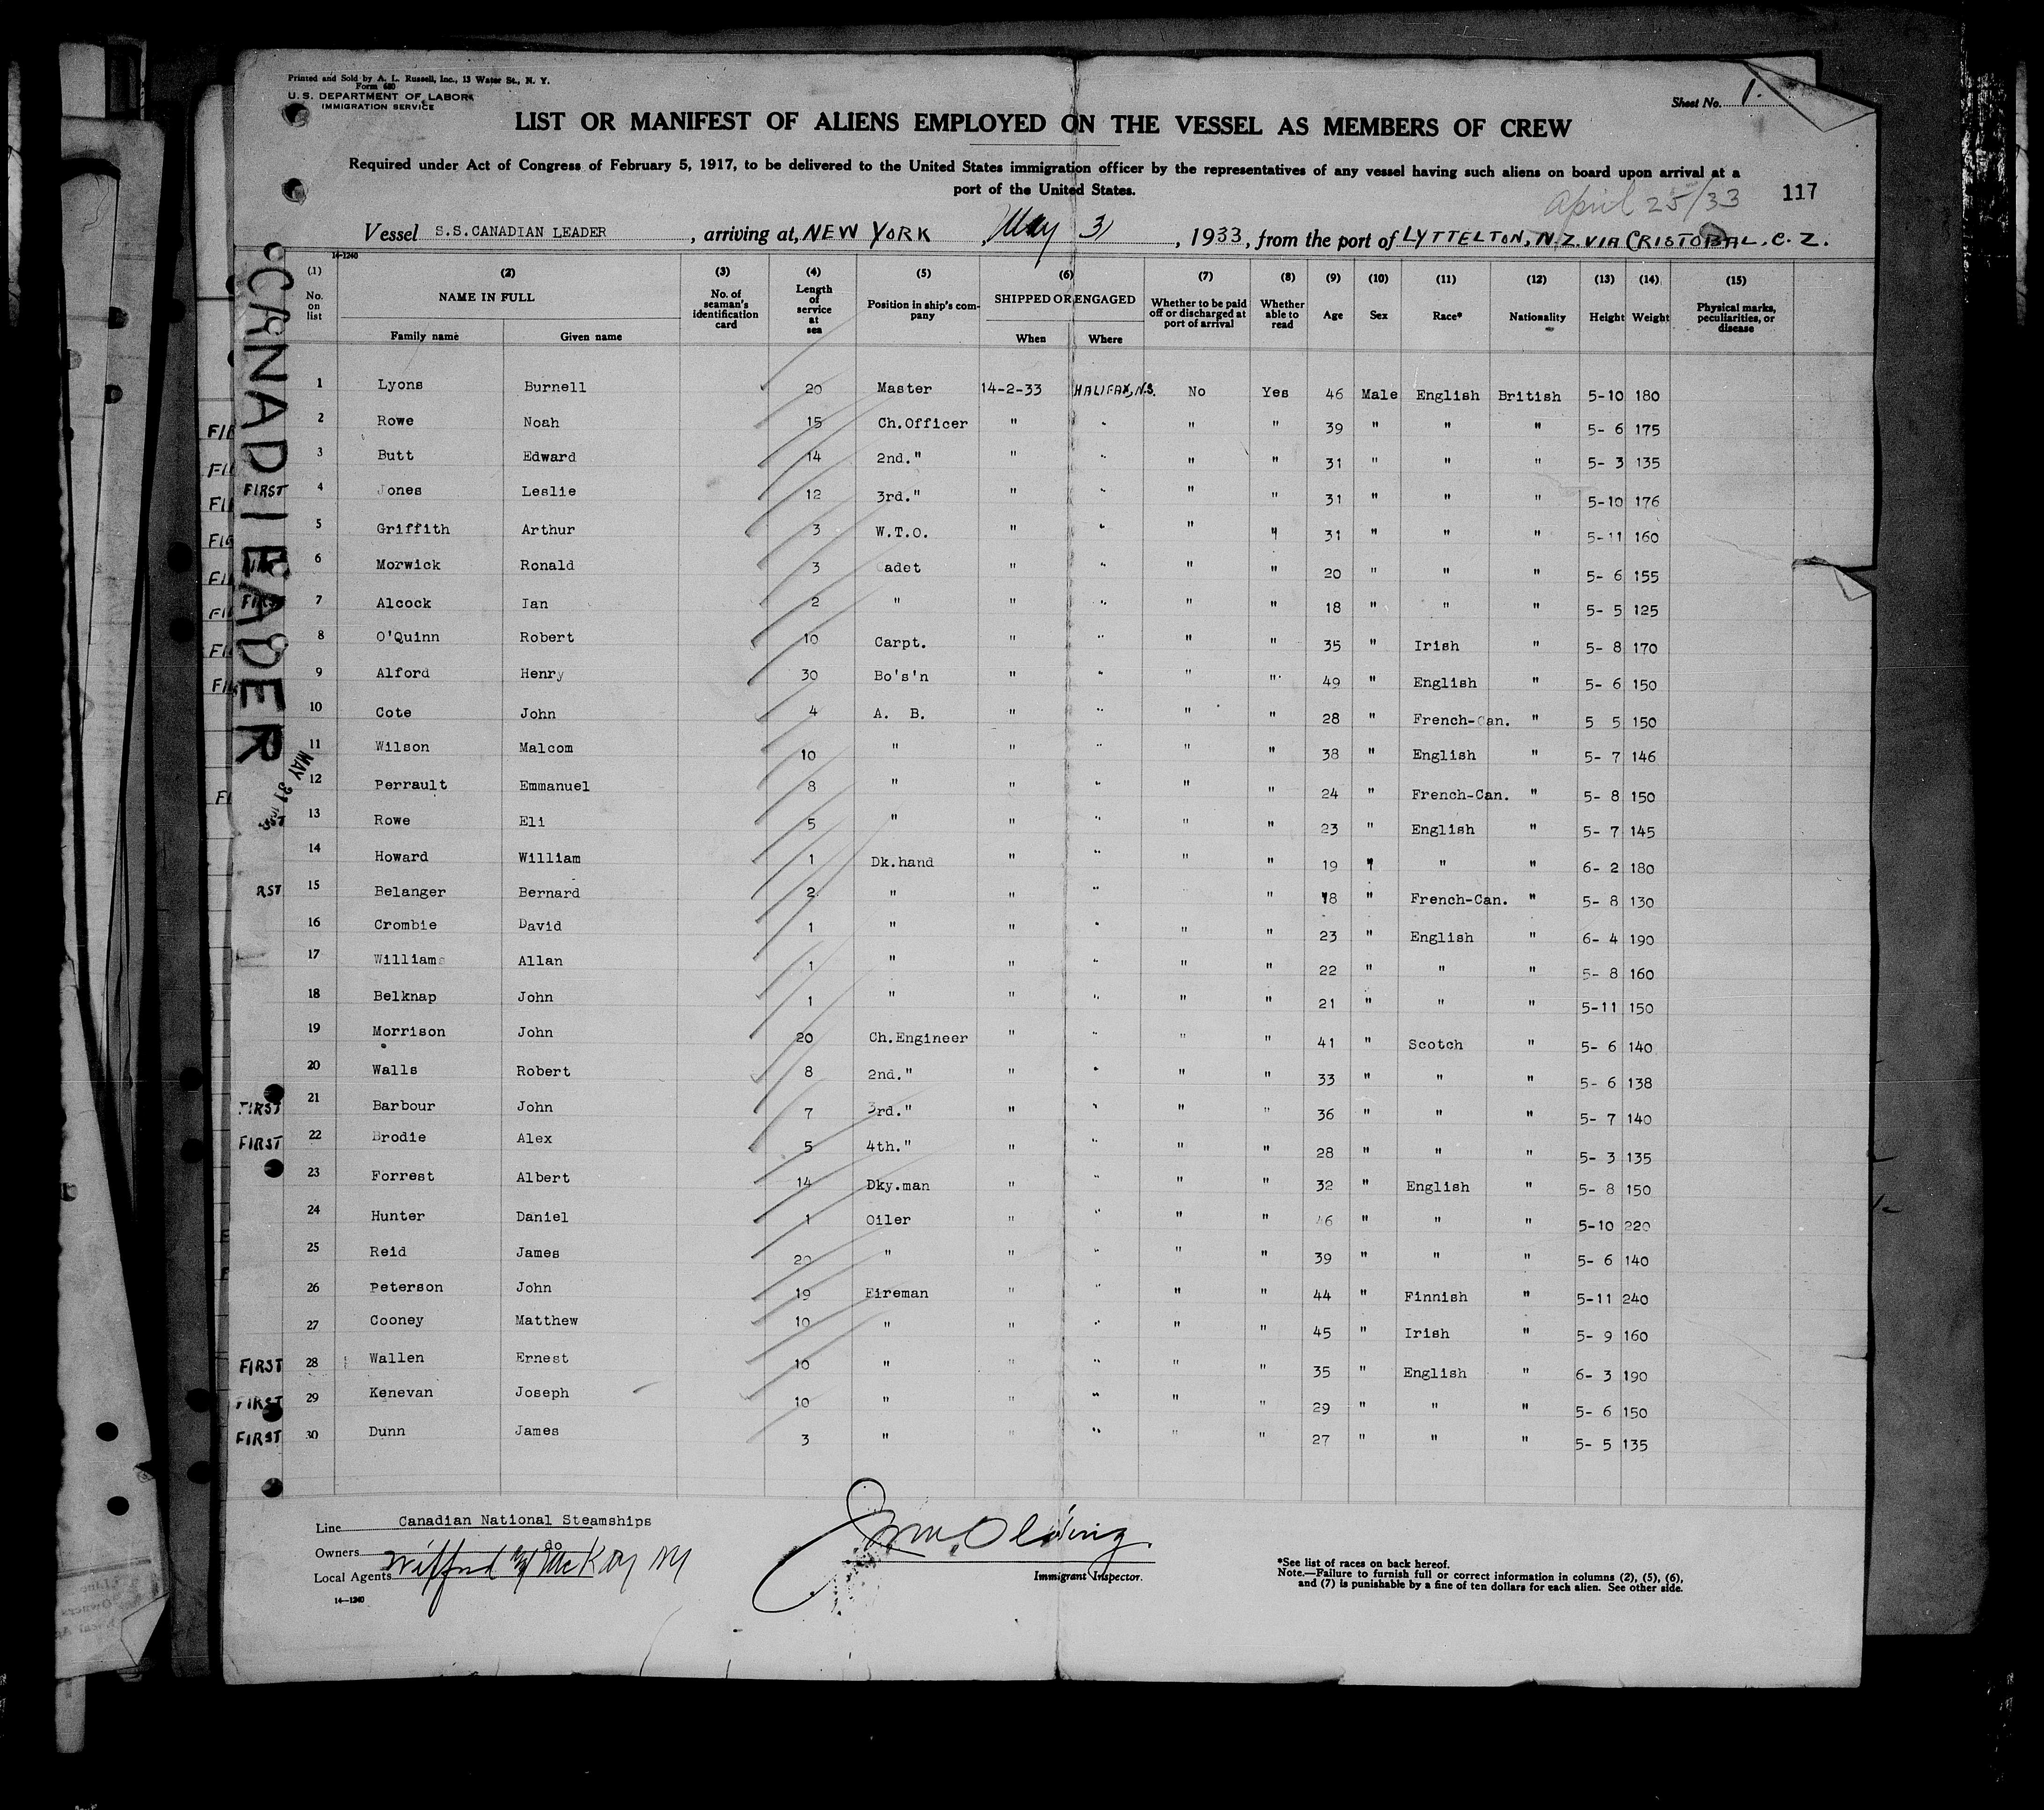 Printed and Sold by A. L. Russell, Inc., 13 Water St., N. Y.
Form 680
U. S. DEPARTMENT OF LABOR
IMMIGRATION SERVICE
Sheet No. 1.
LIST OR MANIFEST OF ALIENS EMPLOYED ON THE VESSEL AS MEMBERS OF CREW
Required under Act of Congress of February 5, 1917, to be delivered to the United States immigration officer by the representatives of any vessel having such aliens on board upon arrival at a
port of the United States.
April 25/33
117
Vessel S.S.CANADIAN LEADER, arriving at, NEW YORK, May 31, 1933, from the port of LYTTELTON, N.Z. VIA CRISTOBAL. C. Z.
14-1240
(1) No. on list (2) NAME IN FULL Family name Given name (3) No. of seaman's identification card (4) Length of service at sea (5) Position in ship's company (6) SHIPPED OR ENGAGED When Where (7) Whether to be paid off or discharged at port of arrival (8) Whether able to read (9) Age (10) Sex (11) Race* (12) Nationality (13) Height (14) Weight (15) Physical marks, peculiarities, or disease
CANADI LEADER
MAY 31
1 Lyons Burnell 20 Master 14-2-33 HALIFAX, N.S. No Yes 46 Male English British 5-10 180
2 Rowe Noah 15 Ch.Officer " " " " 39 " " " 5- 6 175
3 Butt Edward 14 2nd." " " " " 31 " " " 5- 3 135
FIRST 4 Jones Leslie 12 3rd." " " " " 31 " " " 5-10 176
5 Griffith Arthur 3 W.T.O. " " " " 31 " " " 5-11 160
6 Morwick Ronald 3 Cadet " " " " 20 " " " 5- 6 155
FIRST 7 Alcock Ian 2 " " " " " 18 " " " 5- 5 125
8 O'Quinn Robert 10 Carpt. " " " " 35 " Irish " 5- 8 170
9 Alford Henry 30 Bo's'n " " " " 49 " English " 5- 6 150
10 Cote John 4 A. B. " " " " 28 " French-Can. " 5 5 150
11 Wilson Malcom 10 " " " " " 38 " English " 5- 7 146
12 Perrault Emmanuel 8 " " " " " 24 " French-Can. " 5- 8 150
13 Rowe Eli 5 " " " " " 23 " English " 5- 7 145
14 Howard William 1 Dk.hand " " " " 19 " " " 6- 2 180
RST 15 Belanger Bernard 2 " " " " 18 " French-Can. " 5- 8 130
16 Crombie David 1 " " " " " 23 " English " 6- 4 190
17 Williams Allan 1 " " " " " 22 " " " 5- 8 160
18 Belknap John 1 " " " " " 21 " " " 5-11 150
19 Morrison John 20 Ch.Engineer " " " " 41 " Scotch " 5- 6 140
20 Walls Robert 8 2nd." " " " " 33 " " " 5- 6 138
FIRST 21 Barbour John 7 3rd." " " " " 36 " " " 5- 7 140
FIRST 22 Brodie Alex 5 4th." " " " " 28 " " " 5- 3 135
23 Forrest Albert 14 Dky.man " " " " 32 " English " 5- 8 150
24 Hunter Daniel 1 Oiler " " " " 46 " " " 5-10 220
25 Reid James 20 " " " " " 39 " " " 5- 6 140
26 Peterson John 19 Fireman " " " " 44 " Finnish " 5-11 240
27 Cooney Matthew 10 " " " " " 45 " Irish " 5- 9 160
FIRST 28 Wallen Ernest 10 " " " " " 35 " English " 6- 3 190
FIRST 29 Kenevan Joseph 10 " " " " " 29 " " " 5- 6 150
FIRST 30 Dunn James 3 " " " " " 27 " " " 5- 5 135
Line Canadian National Steamships
Owners do
Local Agents Wilfred McKay NY
Immigrant Inspector.
14—1240
*See list of races on back hereof.
Note.—Failure to furnish full or correct information in columns (2), (5), (6),
and (7) is punishable by a fine of ten dollars for each alien. See other side.